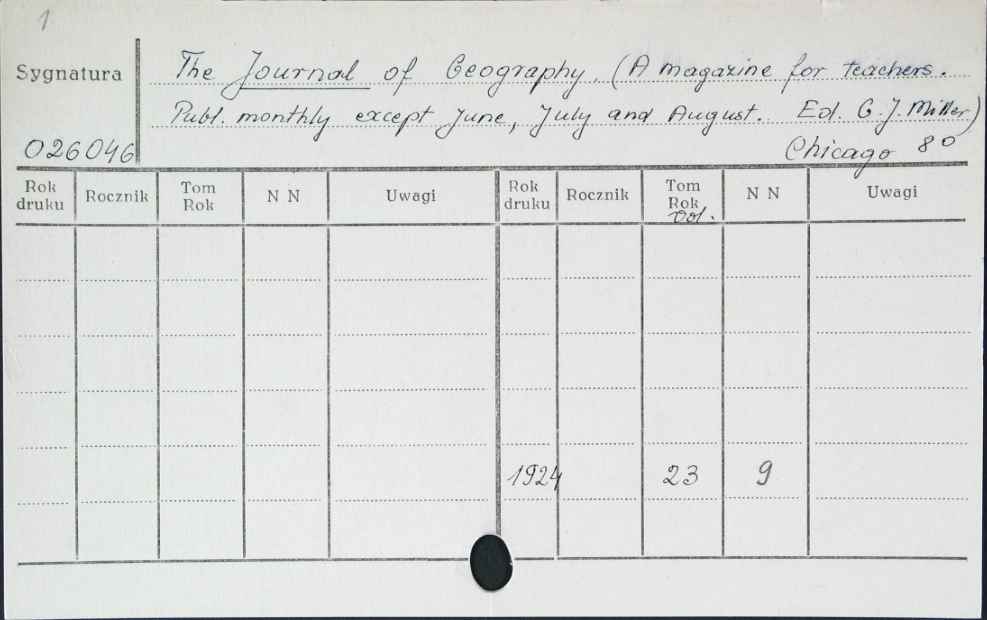 1
Sygnatura
The Journal of Geography. (A magazine for teachers.
Publ. monthly except June, July and August. Ed. G. J. Miller)
026046
Chicago 8º
Rok druku Rocznik Tom Rok N N Uwagi Rok druku Rocznik Tom Rok Vol. N N Uwagi
1924 23 9